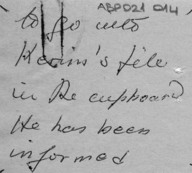 ABP021 014
to go into
Kevin's file
in the cupboard
He has been
informed